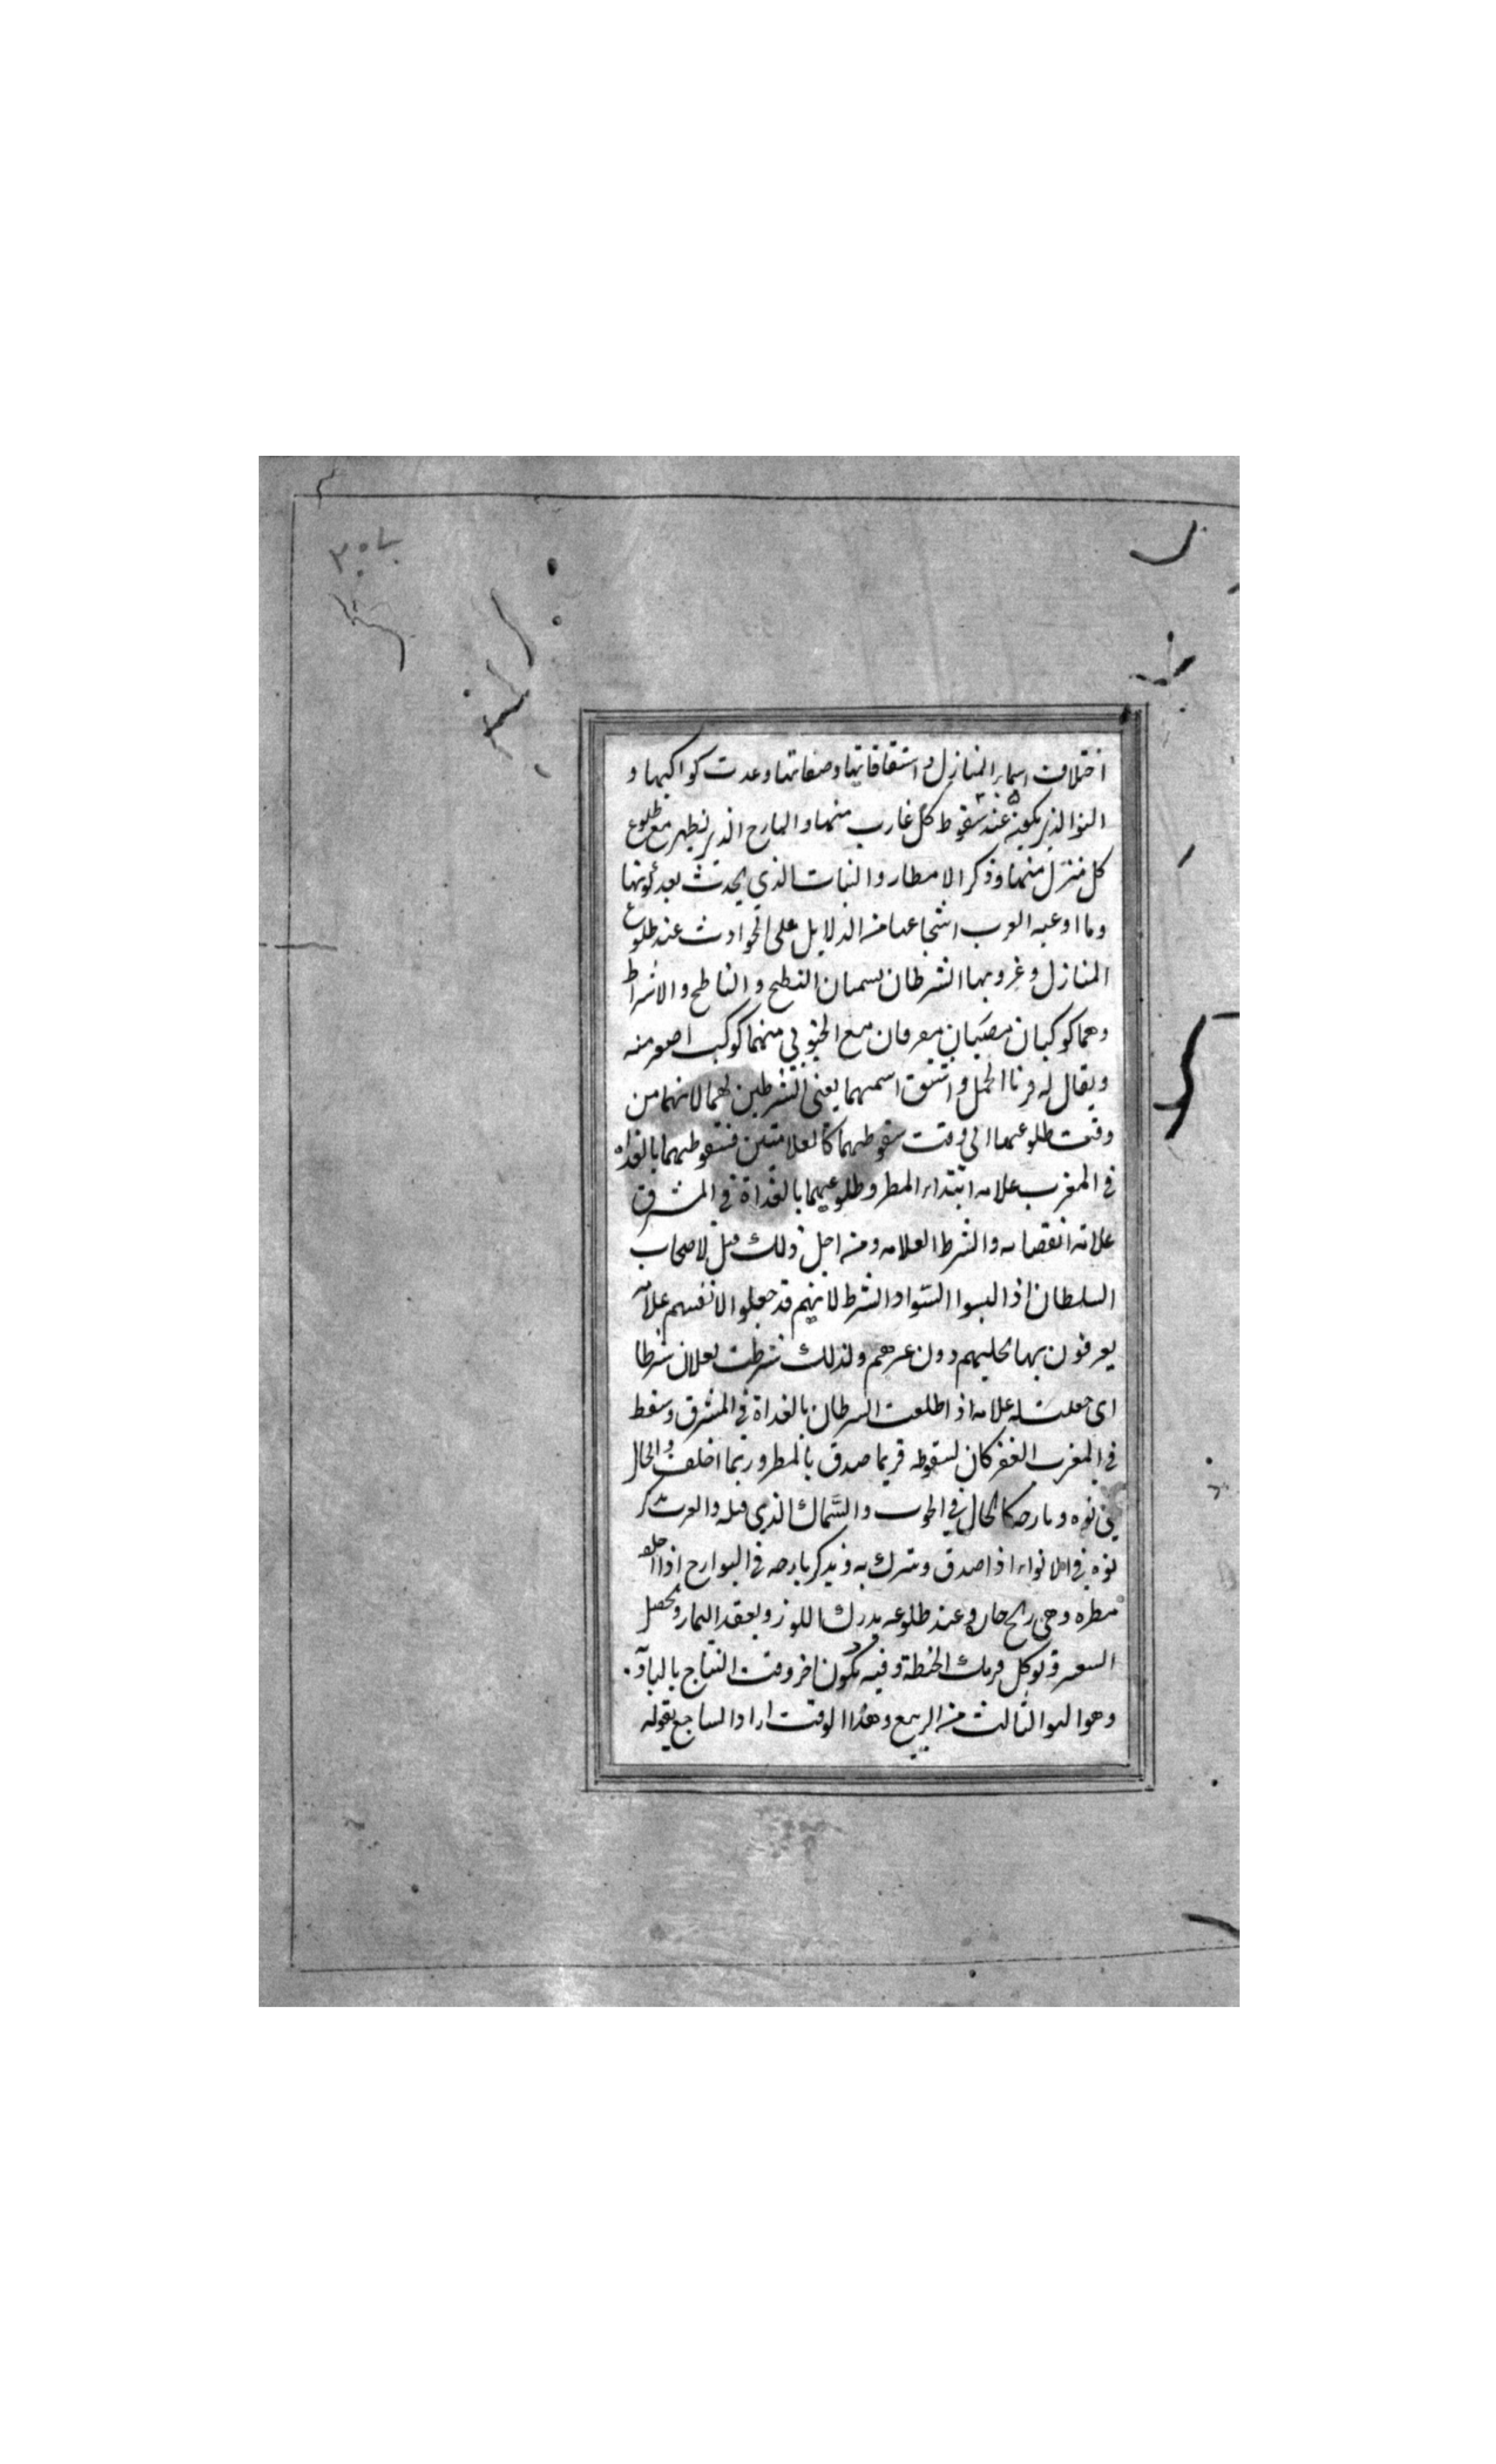 اختلاف اسماء المنازل و اشتقاقاتها وصفاتها وعدت كواكبها و
النوا الذى يكون عند سقوط كل غارب منها والبارح الذى يظهر مع طلوع
كل منزل منها وذكر الامطار والنبات الذي يحدث بعد نوئها
وما اوعيه العرب اشجاعها من الدلايل على الحوادث عند طلوع
المنازل وغروبها الشرطان يسميان النطيح والناطح والاشراط
وهما كوكبان مضيئان مفرقان مع الجنوبي منهما كوكب اصغر منه
ويقال له قرنا الحمل واشتق اسمهما يعنى الشرطين لهما لانهما من
وقت طلوعهما الى وقت سقوطهما كالعلامتين فسقوطهما بالغداه
في المغرب علامه ابتداء المطر وطلوعهما بالغداة في المشرق
علامه انقضايه والشرط العلامه ومن اجل ذلك قيل لاصحاب
السلطان اذا لبسوا السواد الشرط لانهم قد جعلوا الانفسهم علامة
يعرفون بها بحليهم دون غيرهم ولذلك شرطت لفلان شرطا
اى جعلت له علامه اذا طلعت السرطان بالغداة في المشرق وسقط
في المغرب الغفر كان لسقوطه فربما صدق بالمطر وربما اخلف والحال
في نوه وبارحه كالحال في الحوت والسماك الذي قبله والعرب تذكر
نوه في الانواء اذا صدق ويترك به ويذكر بارحه في البوارح اذا اخلف
مطره وهى ريح حاره وعند طلوعه يدرك اللوز ويعقد الثمار ويحصل
الشعير ويوكل فريك الحنطة وفيه يكون اخر وقت النتاج بالبادية
وهو النو الثالث من الربيع وهذا الوقت اراد الساجع بقوله